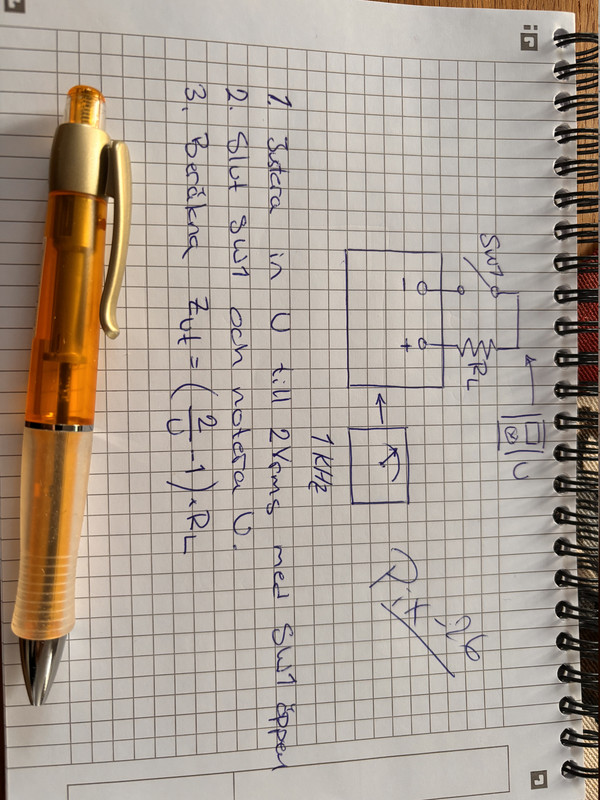 SW1
RL
U
- +
1 KHz
1. Justera in U till 2Vrms med SW1 öppen
2. Slut SW1 och notera U.
3. Beräkna Zut = (2/U - 1) · RL